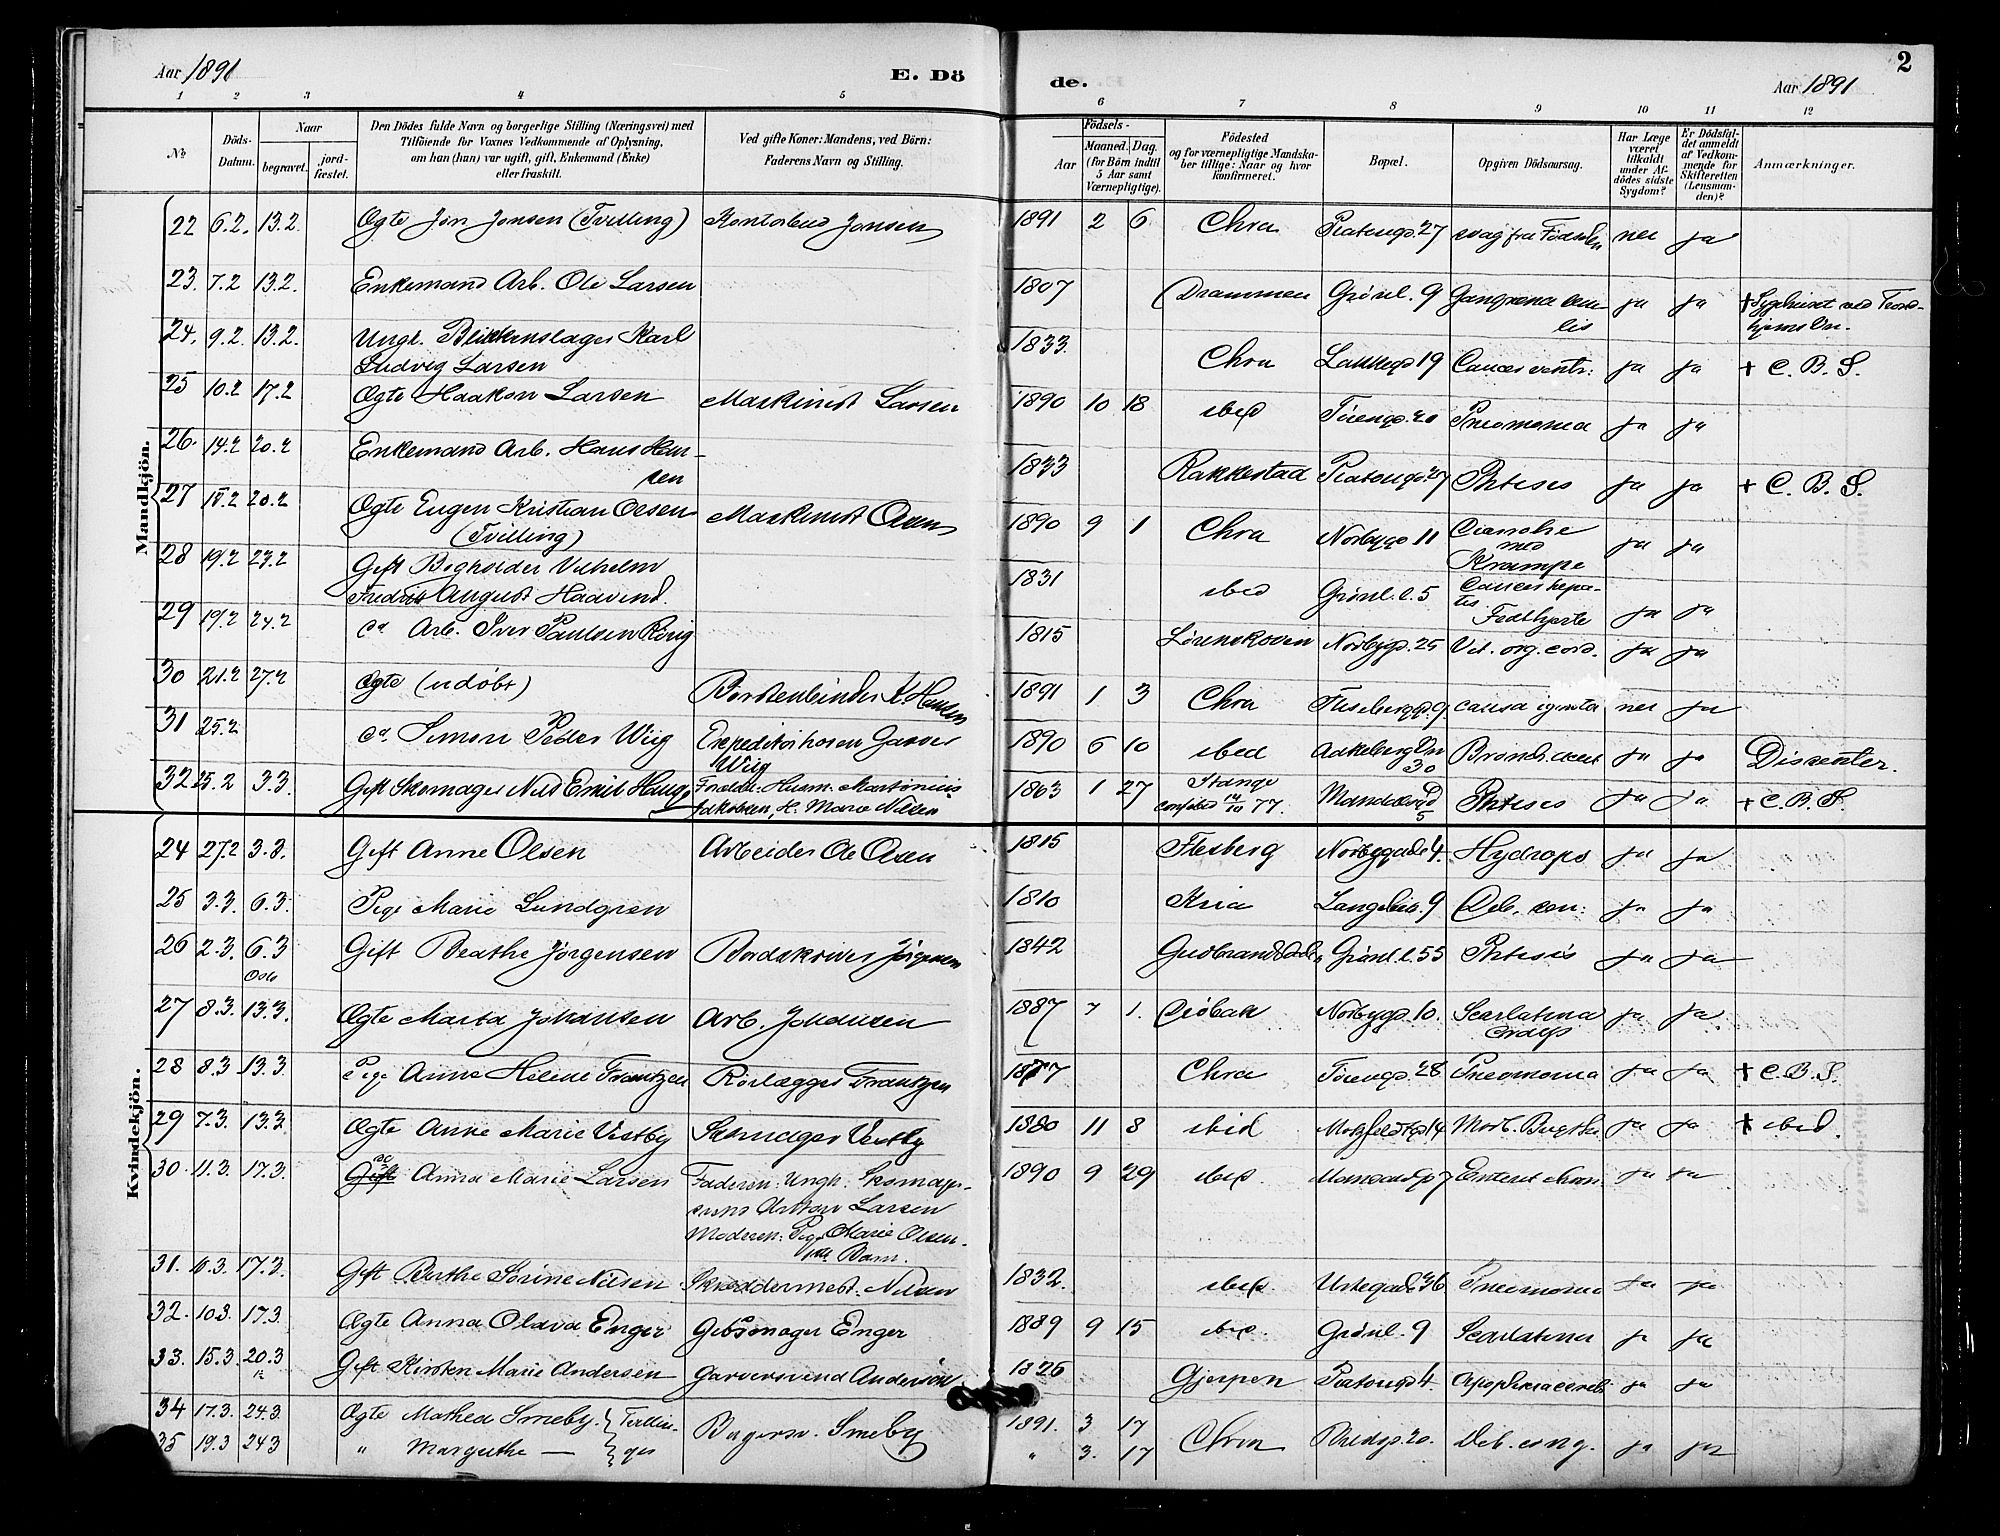 Aar 1891
E. Dö
de.
Aar 1891
2
1 2 3 4 5 6 7 8 9 10 11 12
No
Döds-Datum.
Naar
begravet.
jord-fæstet.
Den Dödes fulde Navn og borgerlige Stilling (Næringsvei) med
Tilföiende for Voxnes Vedkommende af Oplysning,
om han (hun) var ugift, gift, Enkemand (Enke)
eller fraskilt.
Ved gifte Koner: Mandens, ved Börn:
Faderens Navn og Stilling.
Födsels-
Aar
Maaned. Dag.
(for Börn indtil
5 Aar samt
Værnepligtige).
Födested
og for værnepligtige Mandska-
ber tillige: Naar og hvor
konfirmeret.
Bopæl.
Opgiven Dödsaarsag.
Har Læge
været
tilkaldt
under Af-
dödes sidste
Sygdom?
Er Dödsfal-
det anmeldt
af Vedkom-
mende for
Skifteretten
(Lensman-
den)?
Anmærkninger.
Mandkjön.
22 6.2. 13.2. Ægte Jon Jonsen (Tvilling) Kontorbud Jonsen 1891 2 6 Chra 27 svag fra Fødselen nei ja
23. 7.2 13.2. Enkemand Arb. Ole Larsen 1807 Drammen Grønl. 9 ja ja + Sygehuset ved Trond-
hjemsvn.
24. 9.2. 13.2. Ungk. Blikkenslager Karl
Ludvig Larsen 1833. Chra Lakkegd 19 Cancer ventr. ja ja + C. B. S.
25 10.2 17.2 Ægte Haakon Larsen Maskinist Larsen 1890 10 18 ibid Tøiengd. 20 Pneumonia ja ja
26. 14.2 20.2 Enkemand Arb. Hans Han-
sen 1833 Rakkestad 27 Phtisis ja ja + C. B. S.
27 20.2 Ægte Eugen Kristian Olsen
(Tvilling) Maskinist Olsen 1890 9 1 Chra Norbygd 11 Diarrohe
med
Krampe ja ja
28 19.2 23.2 Gift Bogholder Vilhelm
August Haavind. 1831 ibid Grønl. l. 5 Cancer hepa-
tis
Fedthjerte ja ja
29 19.2 24.2 Arb. Iver Paulsen 1815 Lørenskoven Norbygd. 25 Vit. org. cord. ja ja
30 21.2 27.2 Ægte (udøbt) Børstenbinder K. Hansen 1891 1 3 Chra 9. causa ignota nei ja
31 25.2 Simon Peder Wiig
Wiig 1890 6 10 ibid Aakebergvn
30 ja ja Dissenter.
32 25.2 3.3. Gift Skomager Nils Emil Haug Foreldr. Husm. Martinius
Jakobsen, H. Marie Nilsen 1863 1 27 Stange
confired 14/10 77. 5 Phtisis ja ja + C. B. S.
Kvindekjön.
24 27.2 3.3. Gift Anne Olsen Arbeider Ole Olsen 1815 Flesberg Norbygade 4. Hydrops ja ja
25 3.3. 6.3. Pige Marie Lundgren 1810 Kria Langeleik. 9 Deb. sen: ja ja
26 2.3. 6.3
Oslo Gift Beathe Jørgensen Bordskriver Jørgensen 1842 Gudbrandsdalen Grønl. l. 55 Phtisis ja ja
27 8.3. 13.3. Ægte Marta Johansen Arb. Johansen 1887 7 1. Drøbak Norbygd. 10. Scarlatina ja ja
28 8.3 13.3. Pige Anna Helene Frantzen Rørlægger Frantzen 1877 Chra Tøiengd. 28 Pneumonia ja ja + C. B. S.
29 7.3. 13.3 Ægte Anne Marie Vestby Skomager Vestby 1880 11 8 ibid 14 Morb. Brigthi ja ja + ibid.
30 11.3. 17.3. Anna Marie Larsen Faderen: Ungk. Skomager-
svend Anton Larsen
Moderen: Pige Marie Olsen.
Barn. 1890 9 29 ibid. 7 Enterit chron ja ja
31. 11.3. 17.3. Gift Berthe Sørine Nilsen Skreddermest. Nilsen 1832. ibid. Urtegade 36 Pneumonia ja ja
32. 10.3. 17.3. Ægte Anna Olava Enger Gibsmager Enger 1889 9 15 ibid. Grønl. 9 Scarlatina ja ja
33. 15.3 20.3 Gift Kirsten Marie Andersen Garversvend Andersen 1826 Gjerpen 4. Apoplexia cerebri ja ja
34 17.3. 24.3. Ægte Mathea Smeby. } Tvillin-
35 19.3 24.3 " Margrethe — } ger Bagersv. Smeby 1891. 3 17
" 3. 17 Chra 20. Deb. cong. ja ja